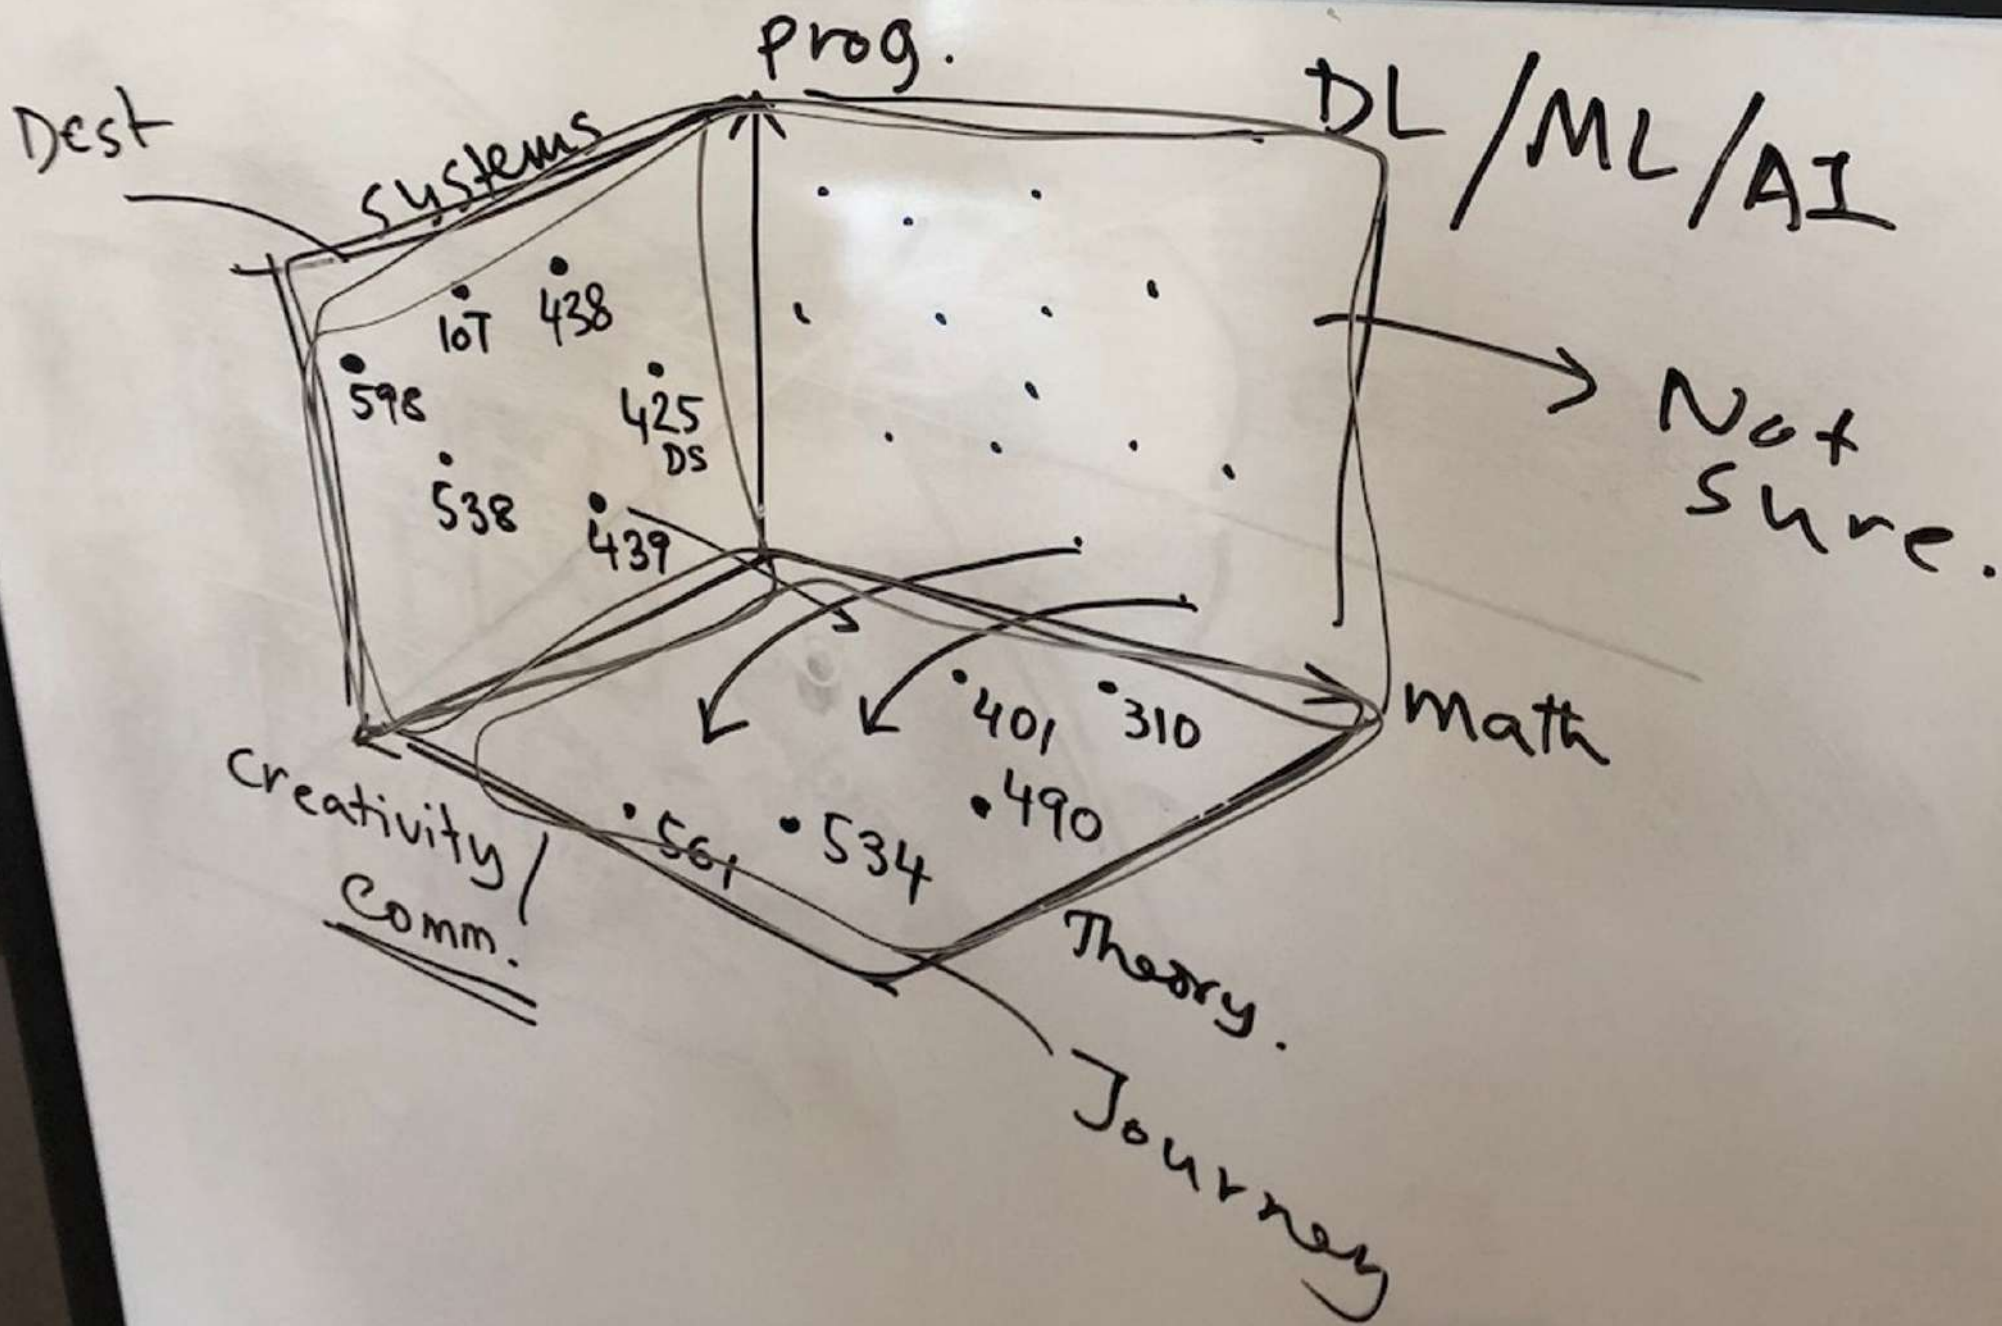 prog.
DL/ML/AI
Dest
systems
IoT
438
598
425
DS
538
439
Not
sure.
401
310
math
490
561
534
Creativity/
Comm.
Theory.
Journey